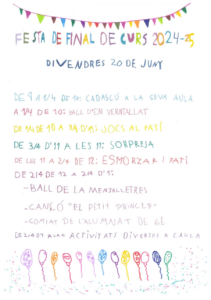 FESTA DE FINAL DE CURS 2024-25
DIVENDRES 20 DE JUNY
DE 9 A 1/4 DE 10: CADASCÚ A LA SEVA AULA
A 1/4 DE 10: BALL D'EN VERNTALLAT
DE 10 A JOCS AL PATI
DE 3/4 D'11 A LES 11: SORPRESA
DE LES 11 A 2/4 DE 12: ESMORZAR I PATI
DE 2/4 DE 12 A 2/4 D'1:
-BALL DE LA MENJALLETRES
-CANÇÓ "EL PETIT PRÍNCEP"
-COMIAT DE L'ALUMNAT DE 6È
ACTIVITATS DIVERSES A L'AULA